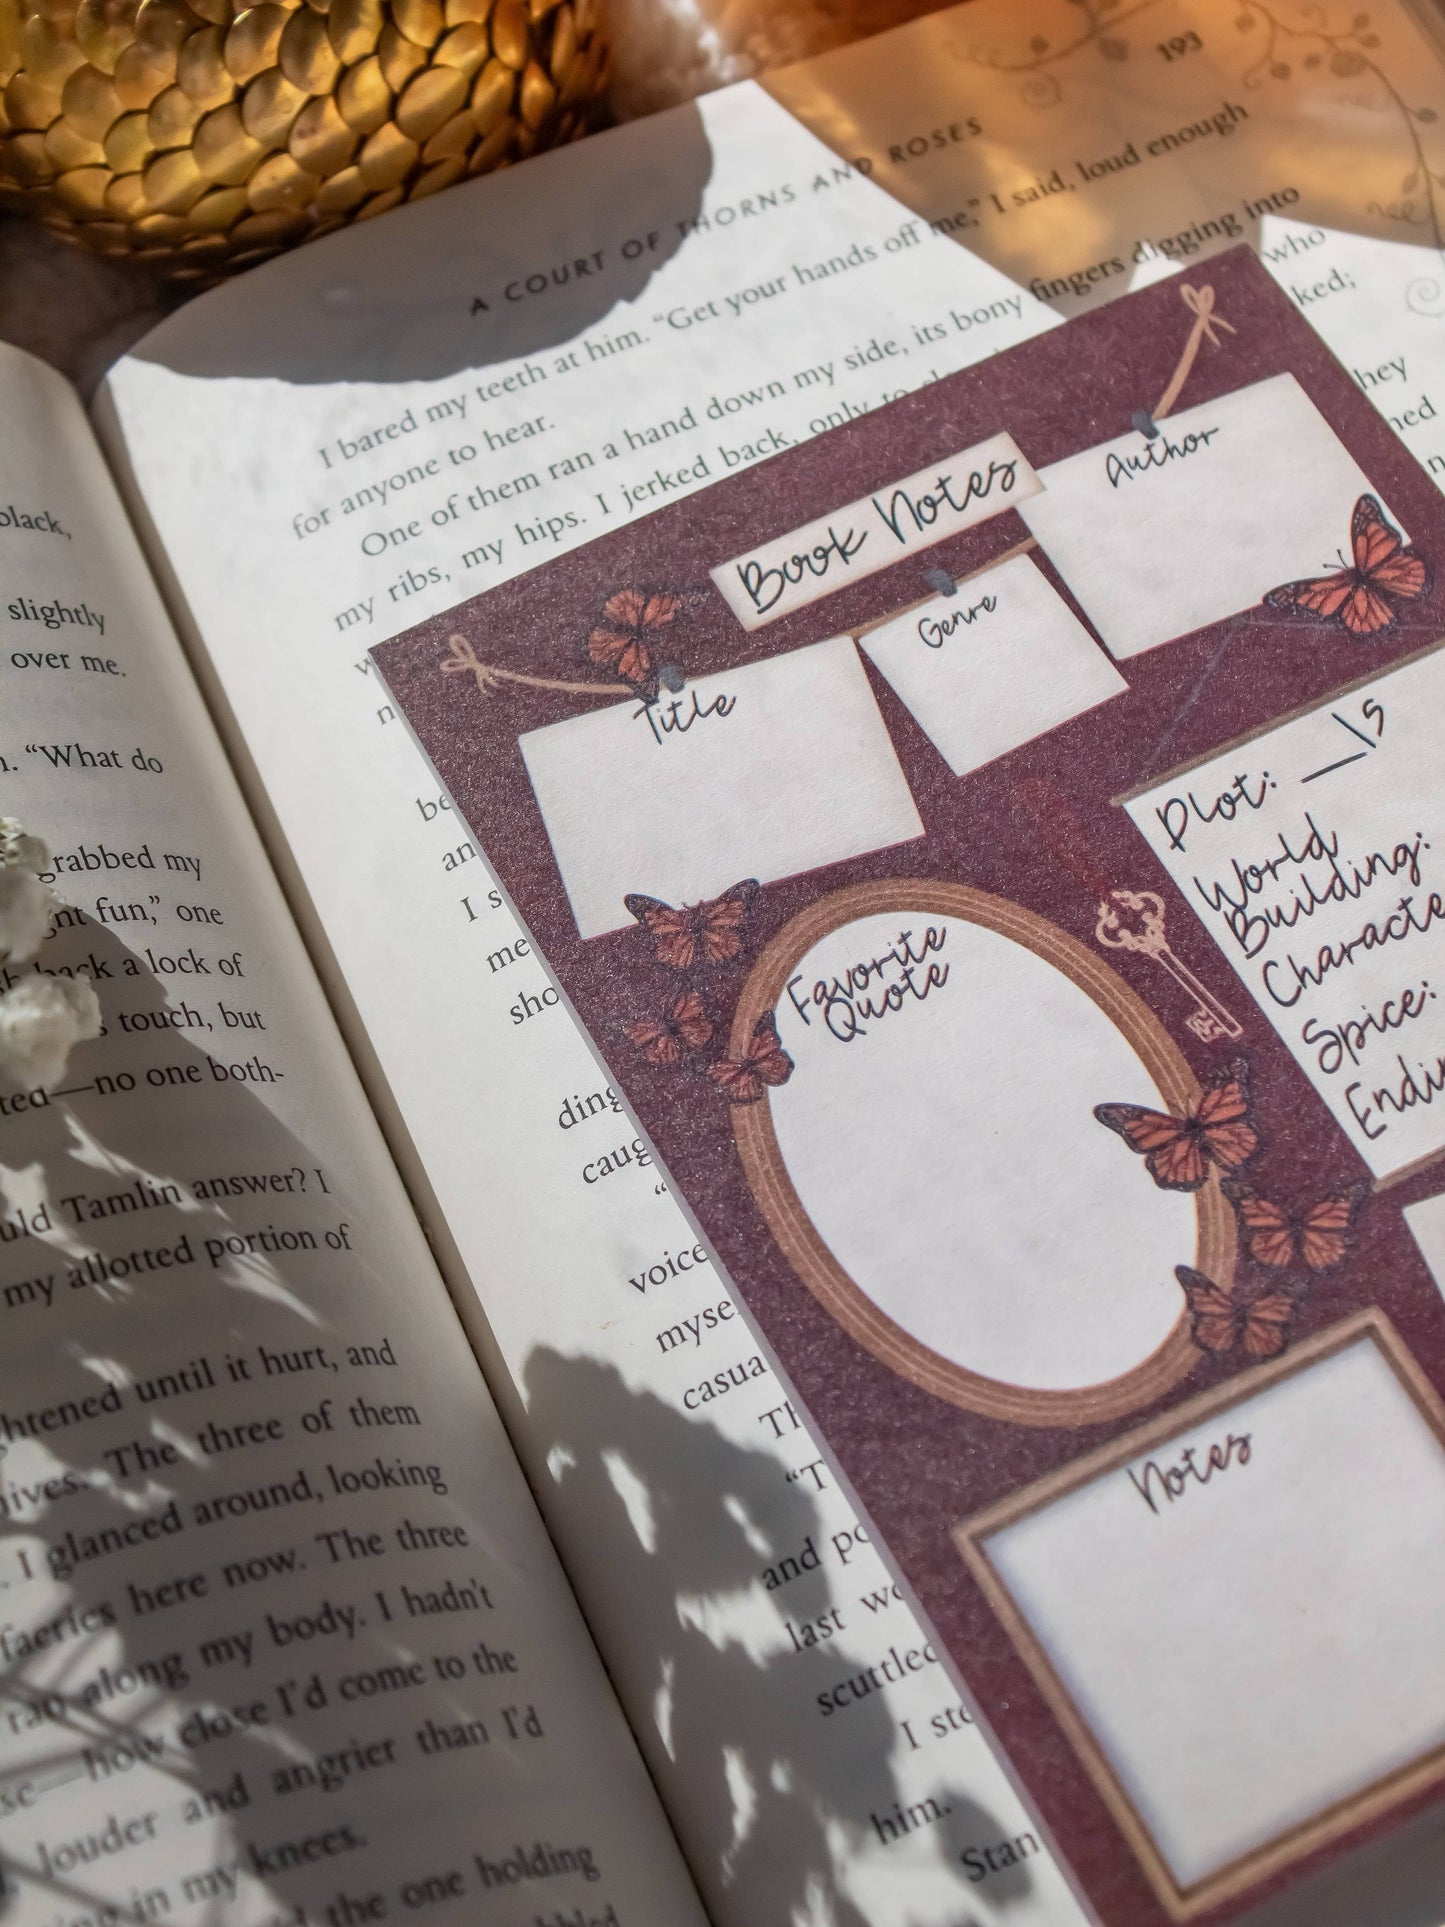 black,
slightly
over me.
“What do
grabbed my
nt fun,” one
back a lock of
touch, but
ted—no one both-
uld Tamlin answer? I
my allotted portion of
ghtened until it hurt, and
The three of them
I glanced around, looking
faeries here now. The three
ran along my body. I hadn’t
how close I’d come to the
louder and angrier than I’d
in my knees.
the one holding
193
A COURT OF THORNS AND ROSES
I bared my teeth at him. “Get your hands off me,” I said, loud enough
for anyone to hear.
One of them ran a hand down my side, its bony fingers digging into
my ribs, my hips. I jerked back, only to
who
ked;
hey
an
I s
me
sho
ding
caug
voice
myse
casua
Th
“T
and po
last wo
scuttled
I sto
him.
Stan
Book Notes
Title
Genre
Author
Favorite
Quote
Plot: __/5
World
Building:
Characte
Spice:
Endin
Notes